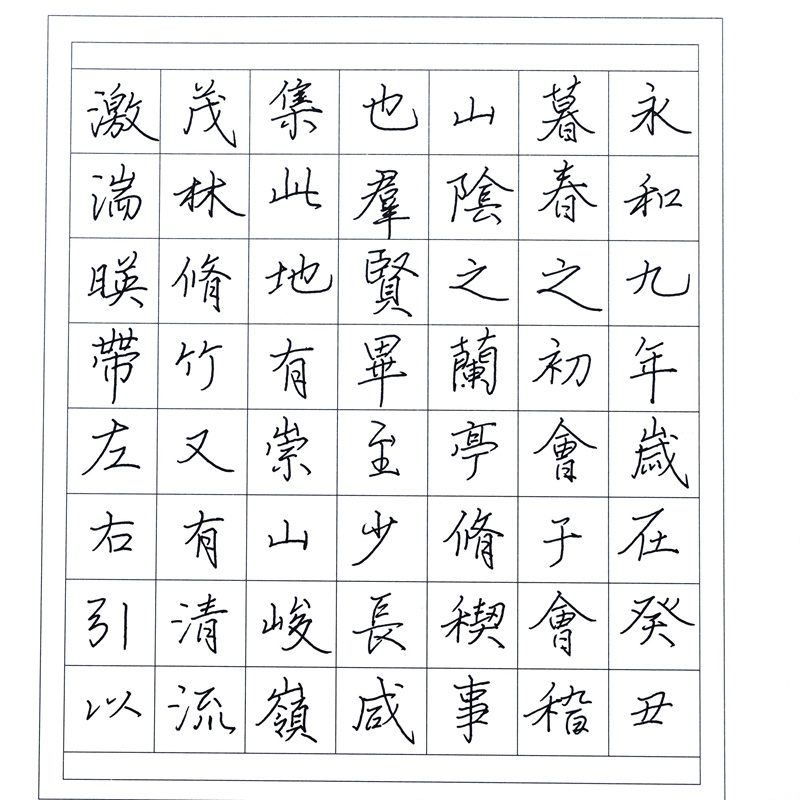 永和九年歲在癸丑
暮春之初會于會稽
山陰之蘭亭脩稧事
也羣賢畢至少長咸
集此地有崇山峻嶺
茂林脩竹又有清流
激湍暎帶左右引以